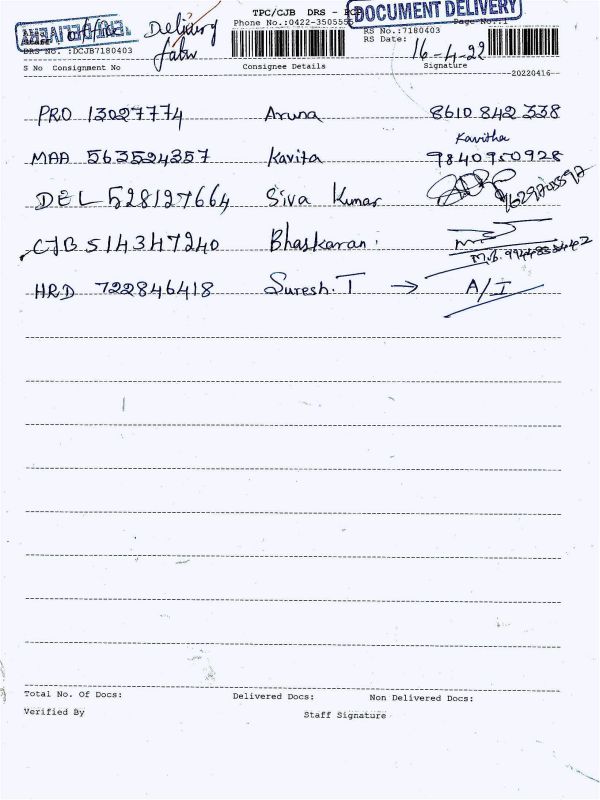 TPC/CJB DRS - DOCUMENT DELIVERY
Delivery
Phone No.:0422-350555 Page No.:1
RS No.:7180403
DRS No. :DCJB7180403
RS Date: 16-4-22
S No Consignment No Consignee Details Signature
20220416
PRO 13027774 Aruna 8610 842 338
Kavitha
MAA 563524357 Kavita 9840950928
DEL 528127664 Siva Kumar
CJB 514347240 Bhaskaran.
HRD 722846418 Suresh.T → A/I
Total No. Of Docs: Delivered Docs: Non Delivered Docs:
Verified By Staff Signature